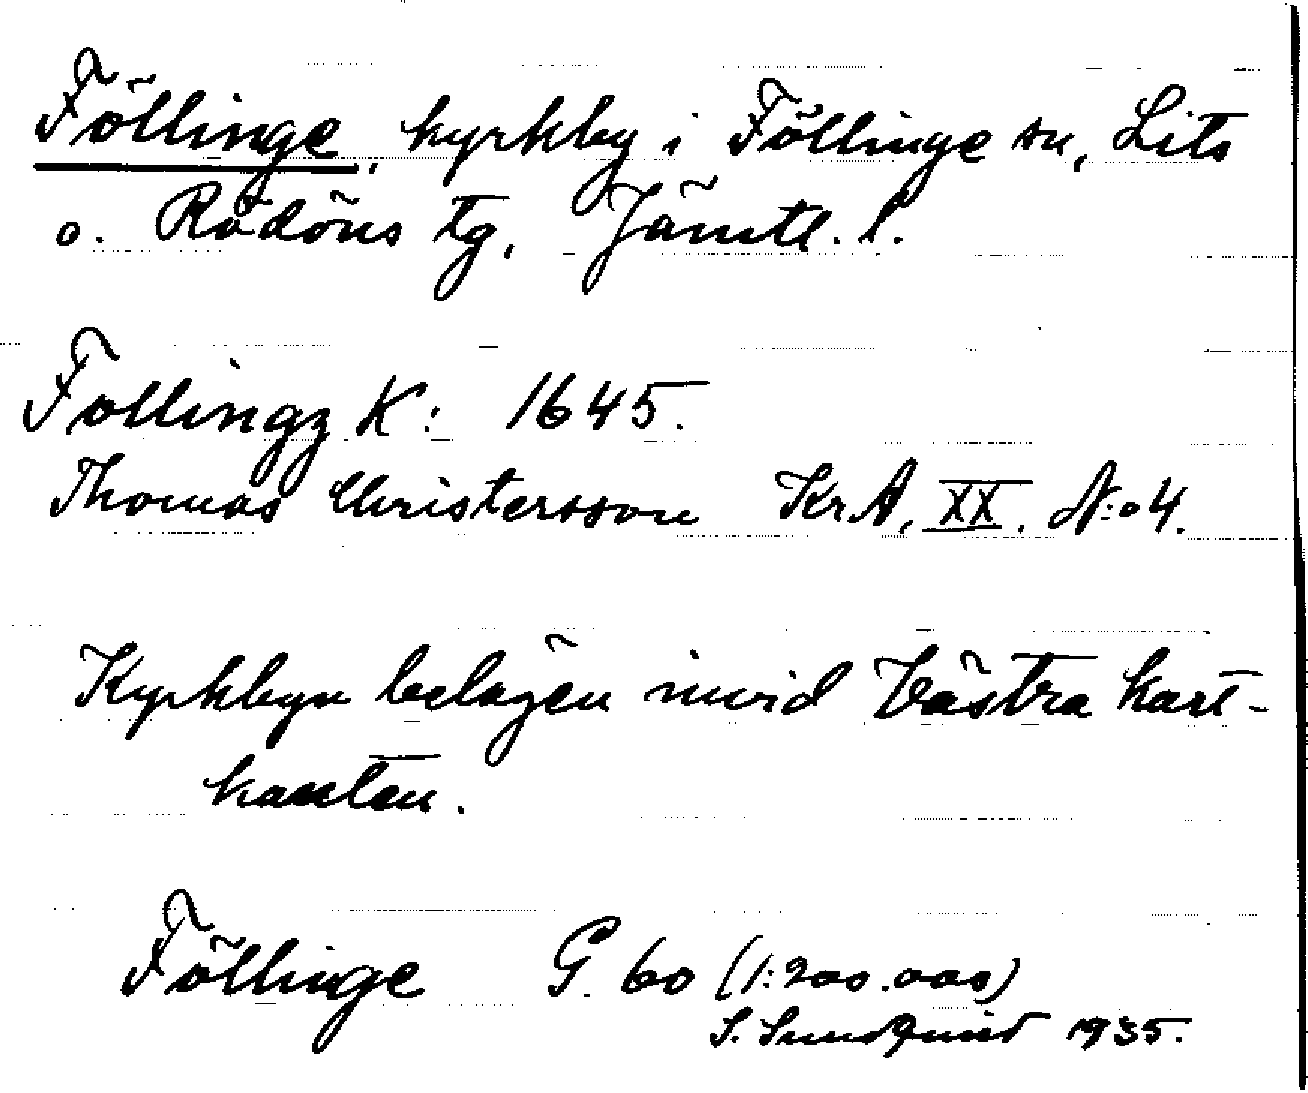 Föllinge, kyrkby i Föllinge sn, Lits
o. Rödöns tg, Jämtl. l.
Follingz K: 1645.
Thomas Christersson KrA, XX. N:o 4.
Kyrkbyn belägen invid Västra kart-
kanten.
Föllinge G. 60 (1:200.000)
S. Sundquist 1935.